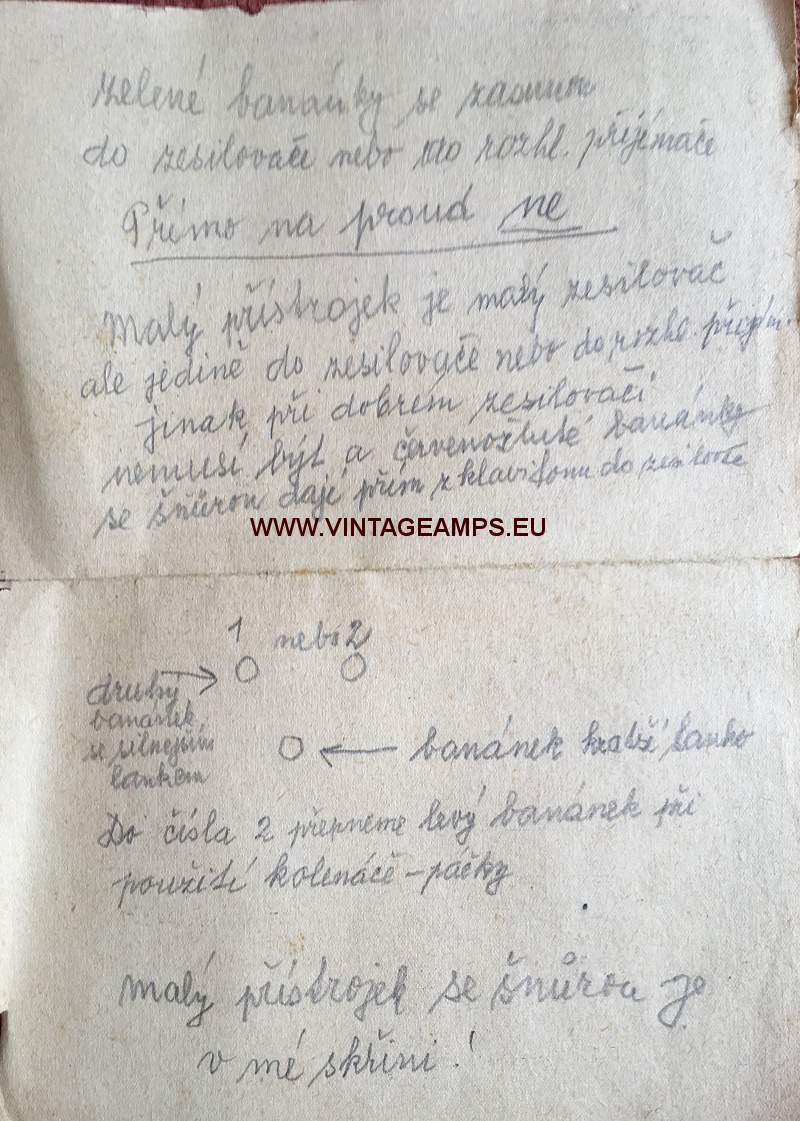 zelené banánky se zasunou
do zesilovače nebo do rozhl. přijímače
Přímo na proud ne
Malý přístrojek je malý zesilovač
ale jedině do zesilovače nebo do rozhl. přijím.
jinak při dobrém zesilovači
nemusí být a červenožluté banánky
se šňůrou dají přím z klavifonu do zesilovače
WWW.VINTAGEAMPS.EU
1 nebo 2
druhý
banánek
se silnejším
lankem
banánek lanko
Do čísla 2 přepneme levý banánek při
použití kolenáče - páčky
Malý přístrojek se šňůrou je
v mé skříni!